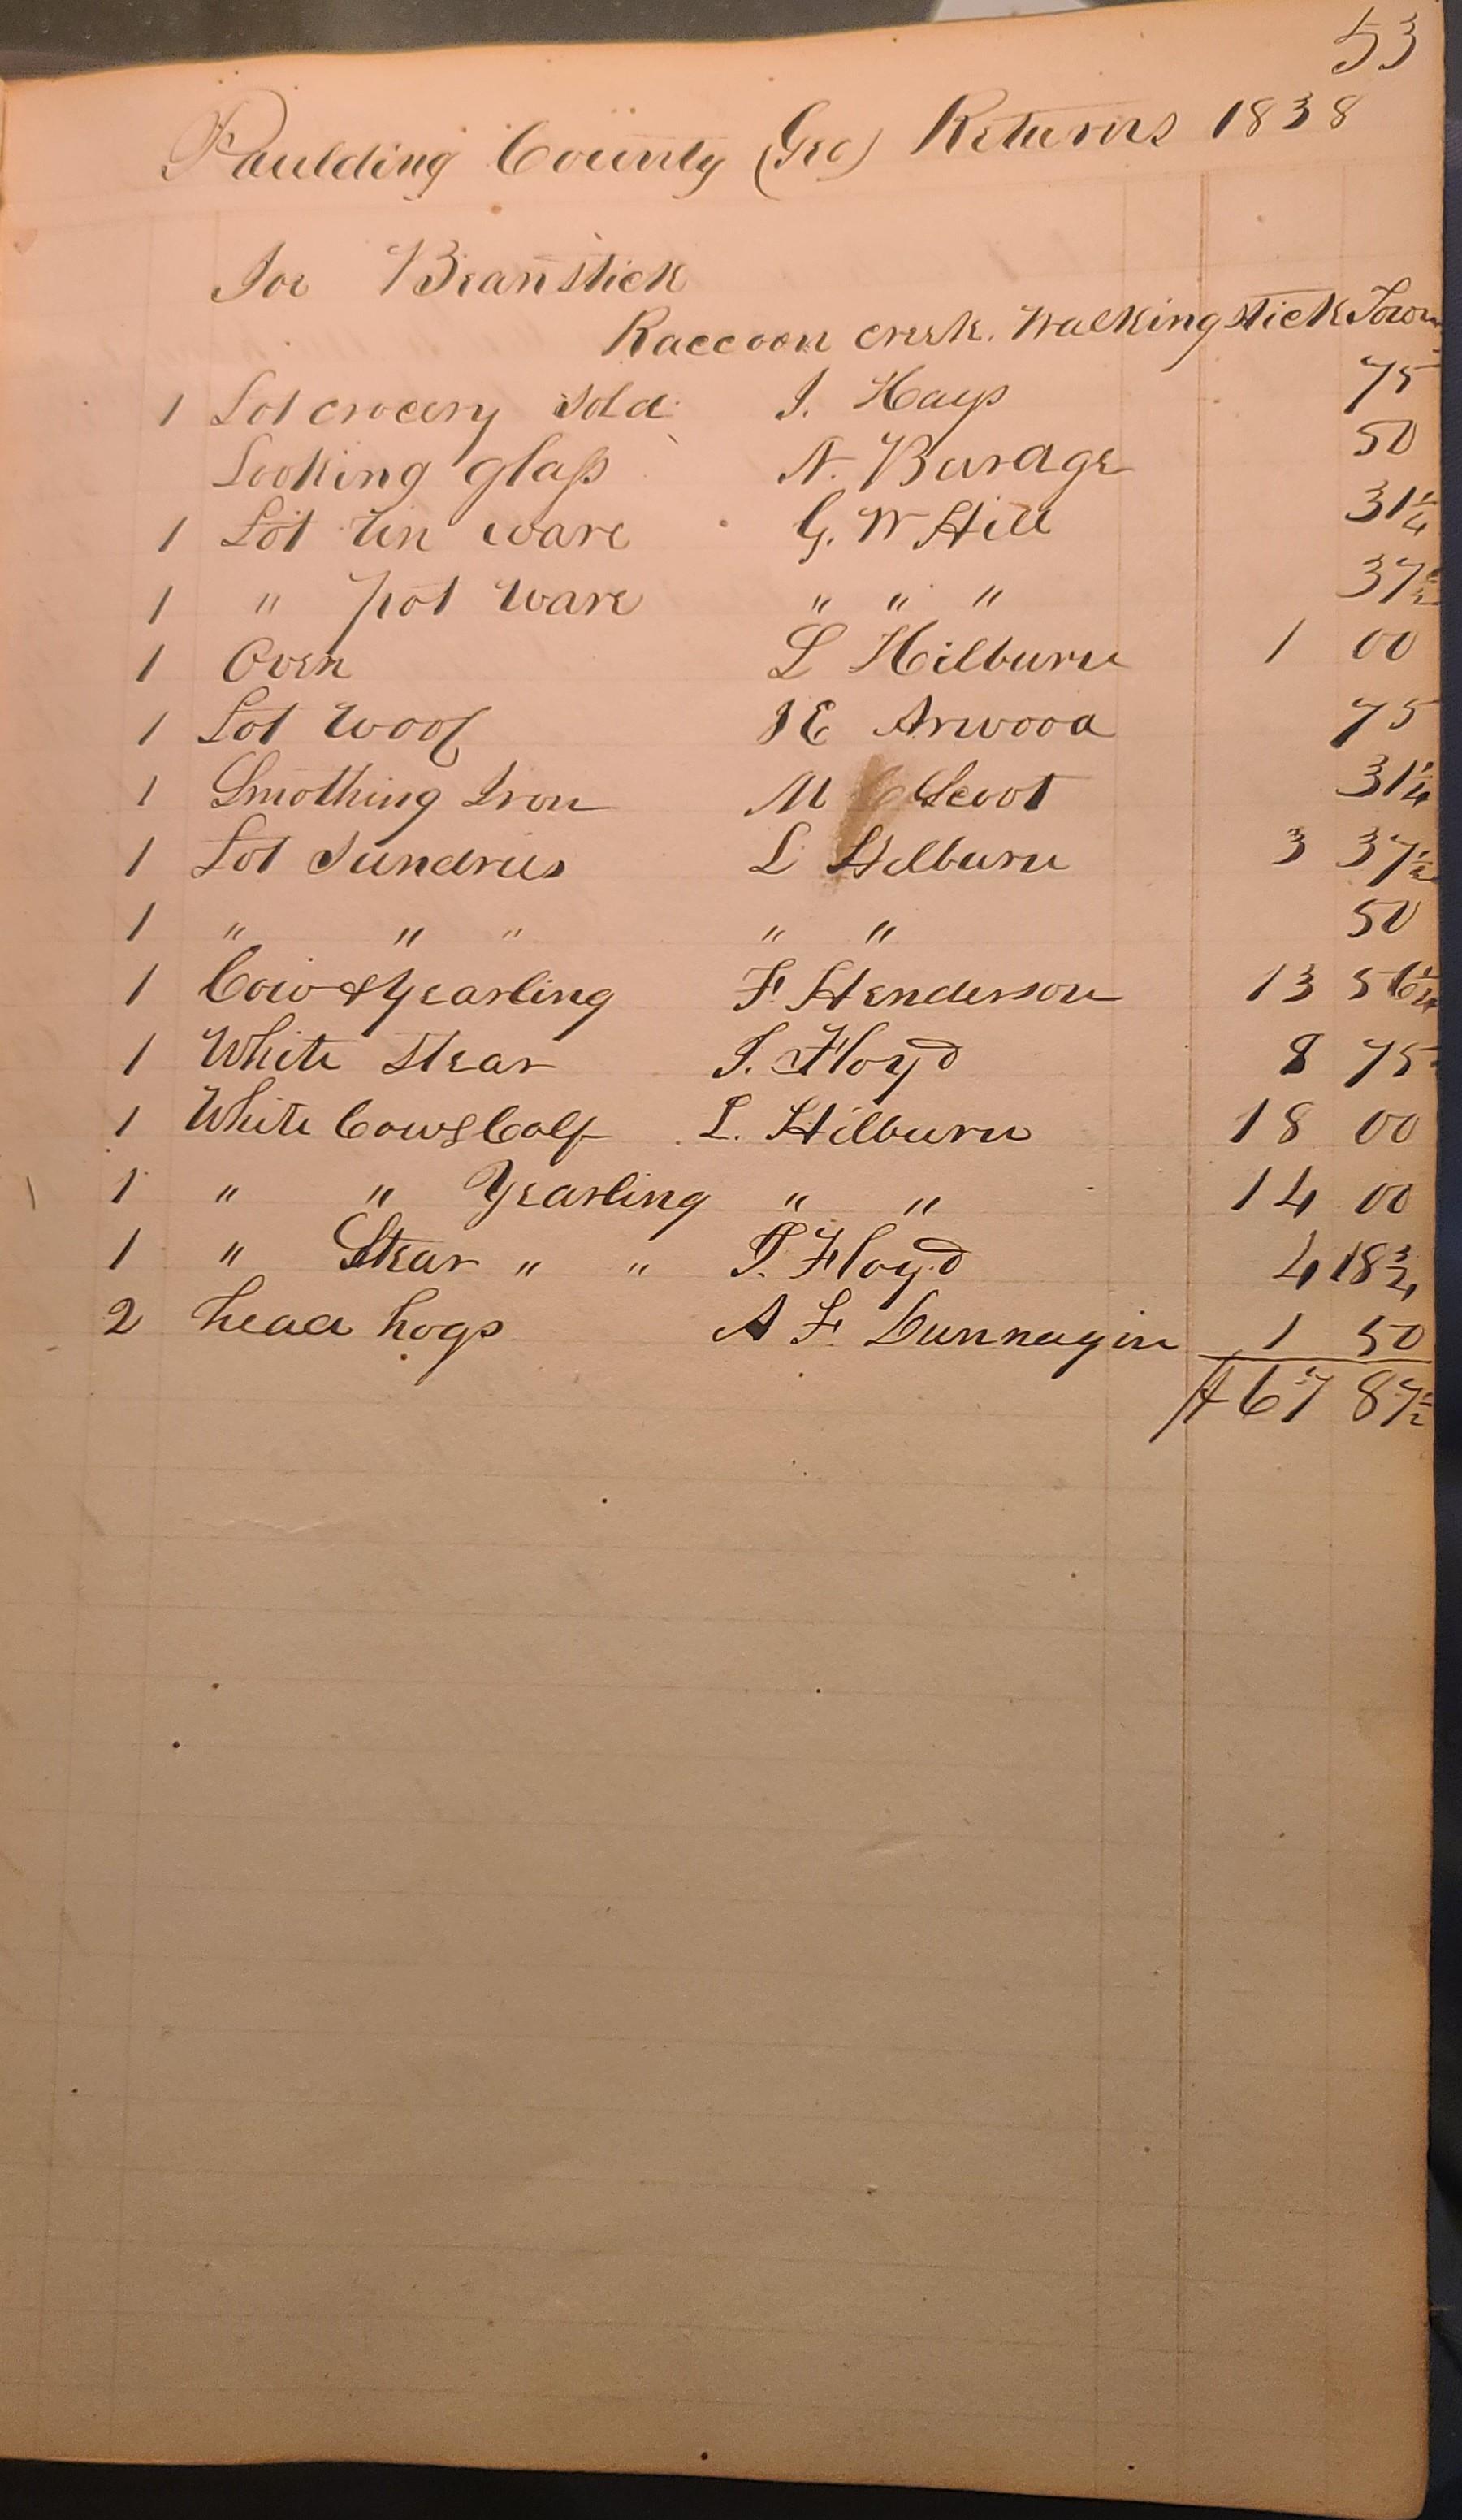 53
Paulding County (Geo) Returns 1838
Joe Beanstick
Raccoon creek. Walkingstick Town
1 Lot crocery sold J. Hays 75
Looking glass N. Burage 50
1 Lot tin ware G. W Hill 31 1/4
1 " pot ware " " " 37 1/2
1 Oven L Hilburn 1 00
1 Lot Wool J E Arwood 75
1 Smothing Iron M Scoot 31 1/4
1 Lot Sundries L Hilburn 3 37 1/2
1 " " " " " 50
1 Cow & Yearling F. Henderson 13 56 1/4
1 White Stear T. Floyd 8 75
1 White Cow & Calf L. Hilburn 18 00
1 " " Yearling " " 14 00
1 " Stear " " T. Floyd 4 18 3/4
2 head hogs A F. Dunnagin 1 50
$67 87 1/2